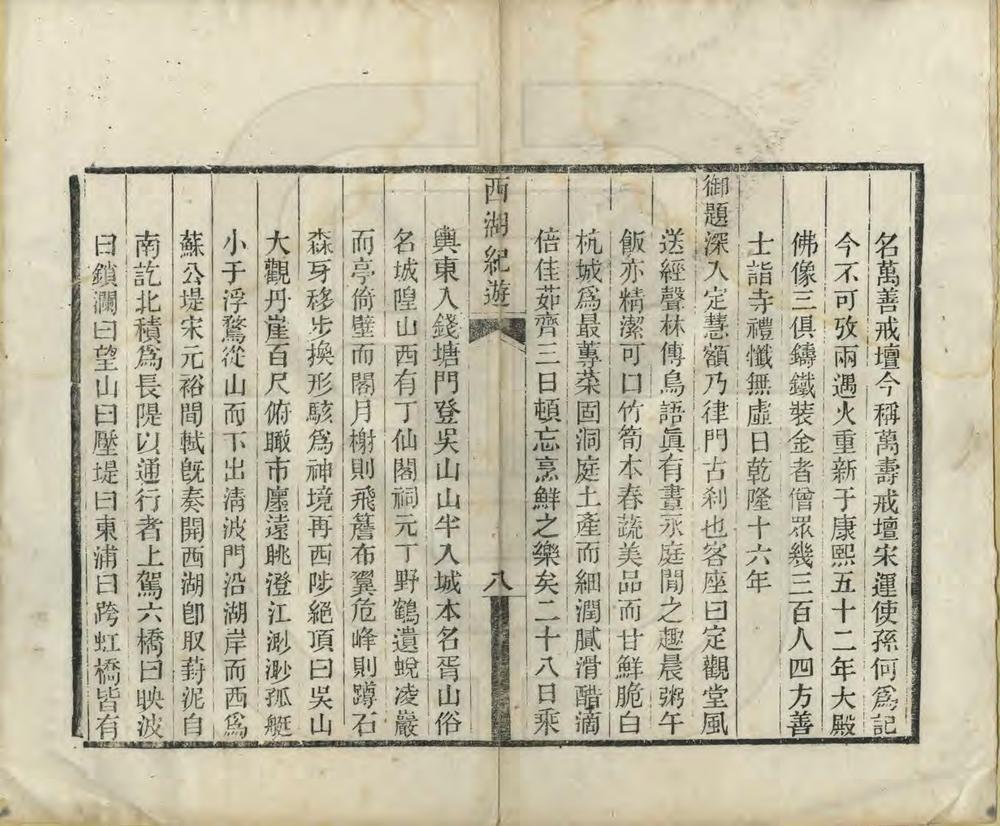 名萬善戒壇今稱萬壽戒壇宋運使孫何爲記
今不可攷兩遇火重新于康熙五十二年大殿
佛像三俱鑄鐵裝金者僧眾幾三百人四方善
士詣寺禮懺無虛日乾隆十六年
御題深入定慧額乃律門古刹也客座曰定觀堂風
送經聲林傳鳥語眞有晝永庭閒之趣晨粥午
飯亦精潔可口竹筍本春蔬美品而甘鮮脆白
杭城爲最蓴菜固洞庭土產而細潤膩滑醋滴
倍佳茹齊三日頓忘烹鮮之樂矣二十八日乘
西湖紀遊
八
輿東入錢塘門登吳山山半入城本名胥山俗
名城隍山西有丁仙閣祠元丁野鶴遺蛻凌巖
而亭倚壁而閣月榭則飛簷布翼危峰則蹲石
森牙移步換形駭爲神境再西陟絕頂曰吳山
大觀丹崖百尺俯瞰市廛遠眺澄江渺渺孤艇
小于浮鶩從山而下出淸波門沿湖岸而西爲
蘇公堤宋元祐間軾旣奏開西湖卽取葑泥自
南訖北積爲長隄以通行者上駕六橋曰映波
曰鎖瀾曰望山曰壓堤曰東浦曰跨虹橋皆有